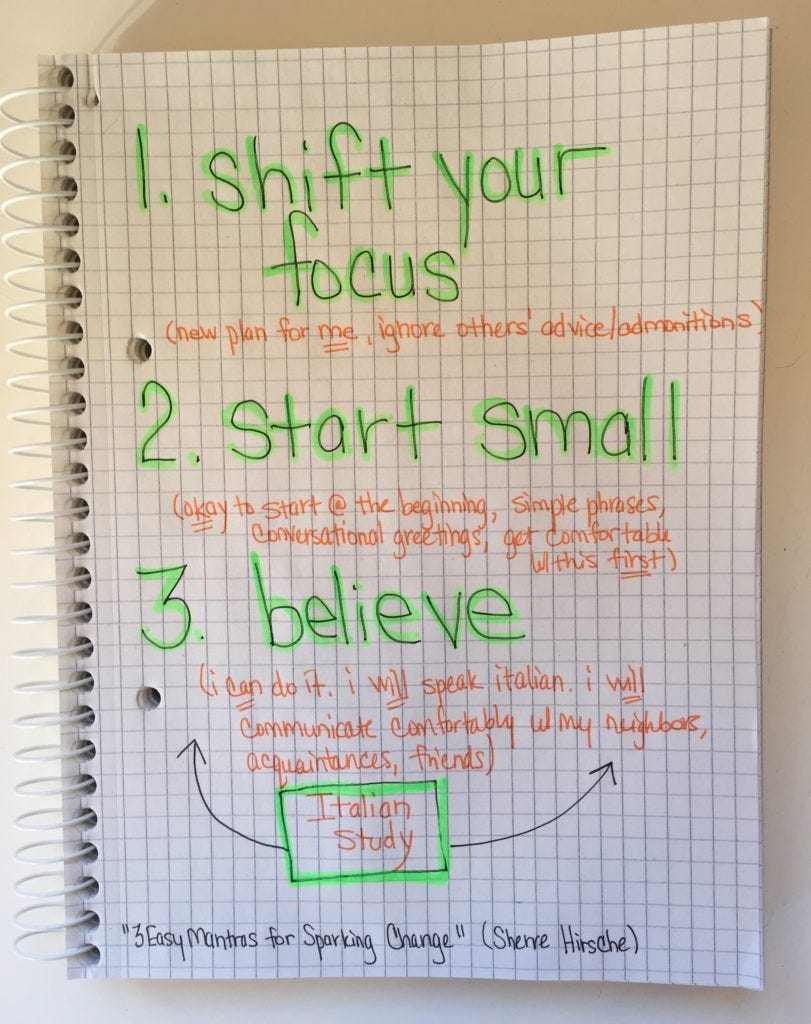 1. shift your
focus
(new plan for me, ignore others' advice/admonitions)
2. start small
(okay to start @ the beginning, simple phrases,
conversational greetings, get comfortable
w/this first)
3. believe
(i can do it. i will speak italian. i will
communicate comfortably w/ my neighbors,
acquaintances, friends)
Italian
Study
"3 Easy Mantras for Sparking Change" (Sherre Hirsche)